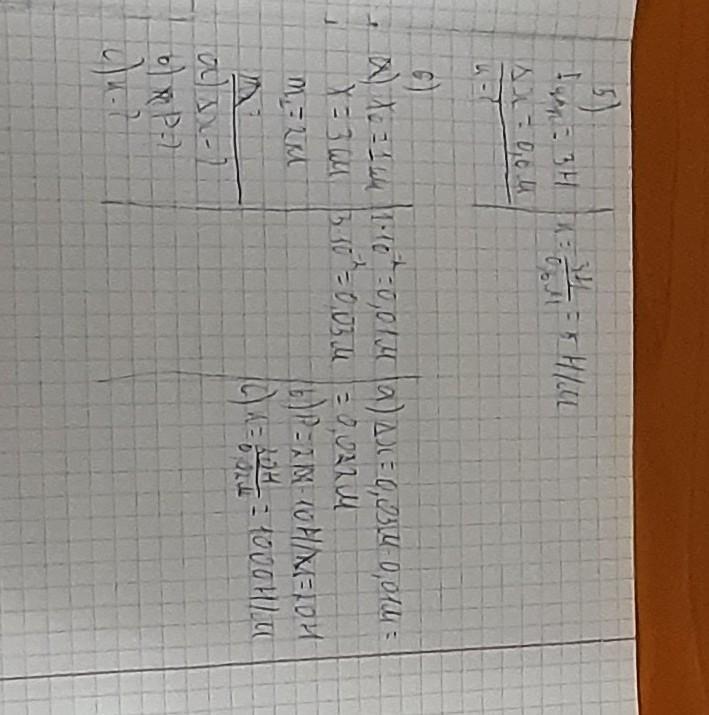 5)
Fупр = 3Н
Δx = 0,6м
k - ?
k = 3Н/0,6м = 5 Н/м
6)
a) x₀ = 1м
x = 3см
m = 2кг
a) Δx - ?
b) P - ?
c) k - ?
1·10⁻² = 0,01м
3·10⁻² = 0,03м
a) Δx = 0,03м - 0,01м =
= 0,02м
b) P = 2кг · 10Н/кг = 20Н
c) k = 20Н/0,02м = 1000Н/м